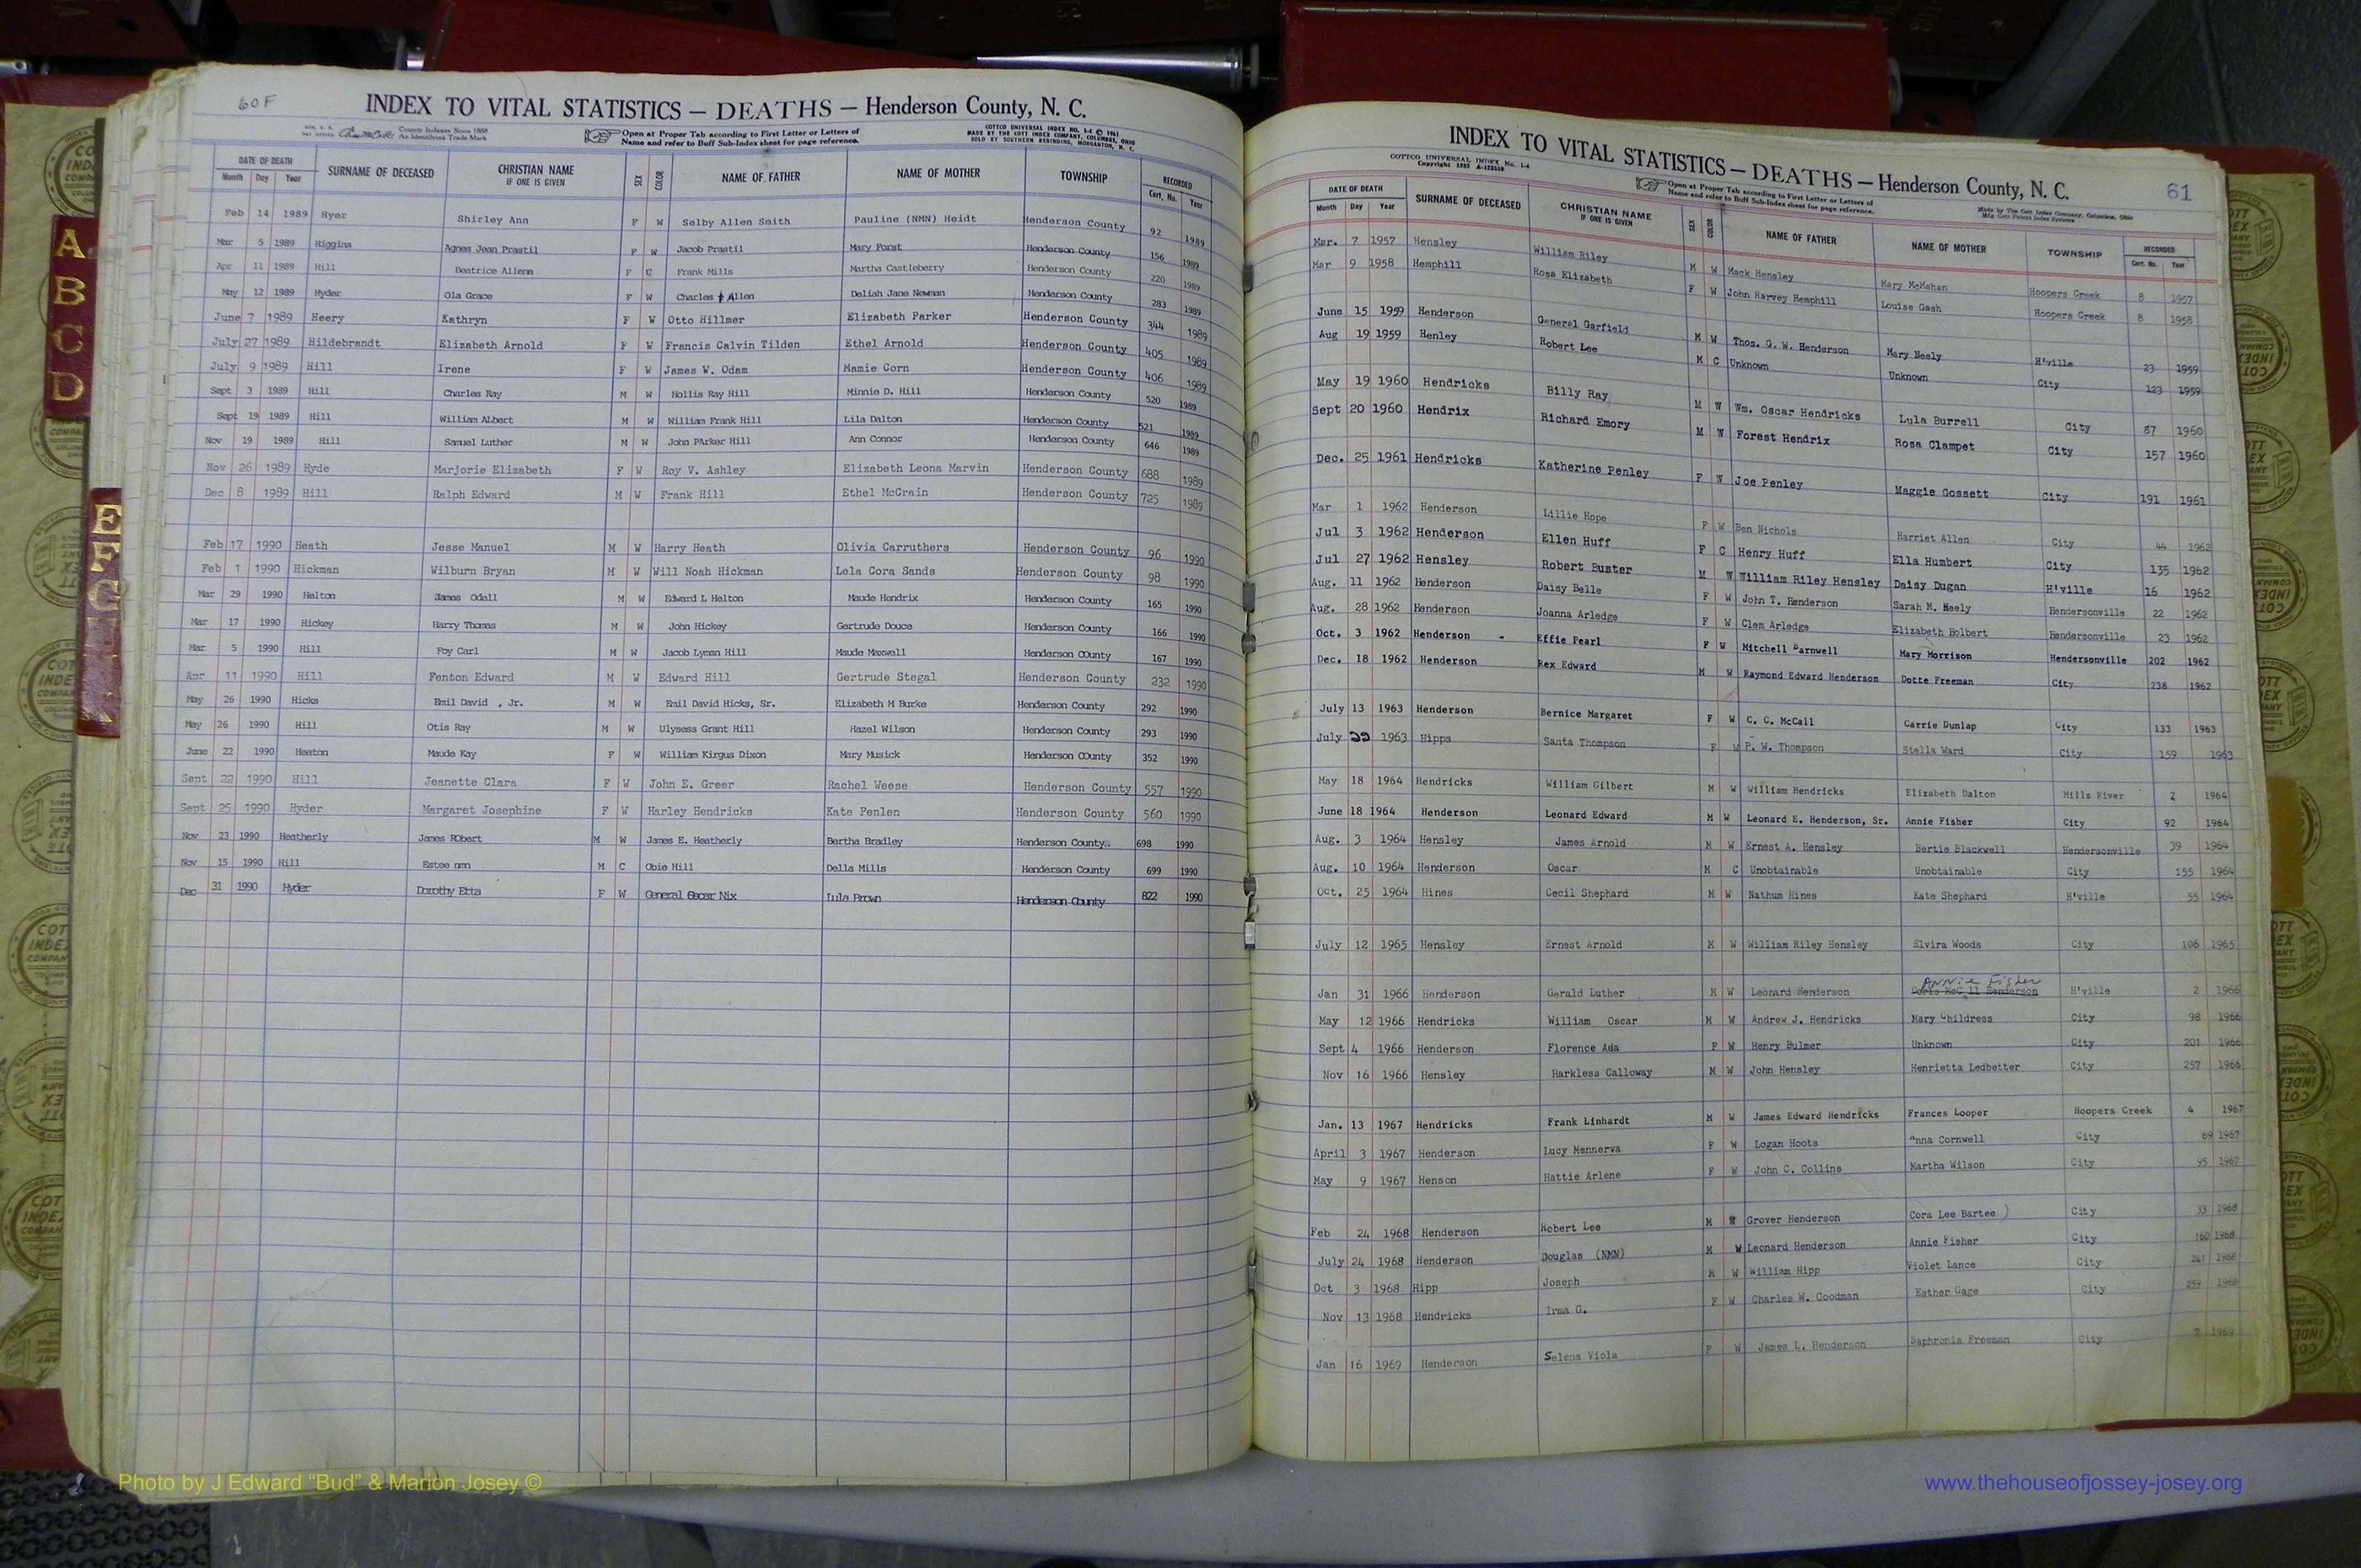 60F
INDEX TO VITAL STATISTICS — DEATHS — Henderson County, N. C.
County Indexes Since 1888
An Identifying Trade Mark
Open at Proper Tab according to First Letter or Letters of
Name and refer to Buff Sub-Index sheet for page reference.
COTTCO UNIVERSAL INDEX NO. 1-4 © 1961
MADE BY THE COTT INDEX COMPANY, COLUMBUS, OHIO
SOLD BY SOUTHERN REBINDING, MORGANTON, N. C.
DATE OF DEATH SURNAME OF DECEASED CHRISTIAN NAME IF ONE IS GIVEN SEX COLOR NAME OF FATHER NAME OF MOTHER TOWNSHIP RECORDED
Month Day Year Cert. No. Year
Feb 14 1989 Hyer Shirley Ann F W Selby Allen Smith Pauline (NMN) Heidt Henderson County 92 1989
Mar 5 1989 Higgins Agnes Jean Prastil F W Jacob Prastil Mary Forst Henderson County 156 1989
Apr 11 1989 Hill Beatrice Allene F C Frank Mills Martha Castleberry Henderson County 220 1989
May 12 1989 Hyder Ola Grace F W Charles Allen Deliah Jane Newman Henderson County 283 1989
June 7 1989 Heery Kathryn F W Otto Hillmer Elizabeth Parker Henderson County 344 1989
July 27 1989 Hildebrandt Elizabeth Arnold F W Francis Calvin Tilden Ethel Arnold Henderson County 405 1989
July 9 1989 Hill Irene F W James W. Odam Mamie Corn Henderson County 406 1989
Sept 3 1989 Hill Charles Ray M W Hollis Ray Hill Minnie D. Hill Henderson County 520 1989
Sept 19 1989 Hill William Albert M W William Frank Hill Lila Dalton Henderson County 521 1989
Nov 19 1989 Hill Samuel Luther M W John PArker Hill Ann Connor Henderson County 646 1989
Nov 26 1989 Hyde Marjorie Elizabeth F W Roy V. Ashley Elizabeth Leona Marvin Henderson County 688 1989
Dec 8 1989 Hill Ralph Edward M W Frank Hill Ethel McCrain Henderson County 725 1989
Feb 17 1990 Heath Jesse Manuel M W Harry Heath Olivia Carruthers Henderson County 96 1990
Feb 1 1990 Hickman Wilburn Bryan M W Will Noah Hickman Lela Cora Sands Henderson County 98 1990
Mar 29 1990 Helton James Odell M W Edward L Helton Maude Hendrix Henderson County 165 1990
Mar 17 1990 Hickey Harry Thomas M W John Hickey Gertrude Douce Henderson County 166 1990
Mar 5 1990 Hill Foy Carl M W Jacob Lyman Hill Maude Maxwell Henderson COunty 167 1990
Apr 11 1990 Hill Fenton Edward M W Edward Hill Gertrude Stegal Henderson County 232 1990
May 26 1990 Hicks Emil David , Jr. M W Emil David Hicks, Sr. Elizabeth M Burke Henderson County 292 1990
May 26 1990 Hill Otis Ray M W Ulysess Grant Hill Hazel Wilson Henderson County 293 1990
June 22 1990 Heaton Maude Kay F W William Kirgus Dixon Mary Musick Henderson COunty 352 1990
Sept 22 1990 Hill Jeanette Clara F W John E. Greer Rachel Weese Henderson County 557 1990
Sept 25 1990 Hyder Margaret Josephine F W Harley Hendricks Kate Penlen Henderson County 560 1990
Nov 23 1990 Heatherly James RObert M W James E. Heatherly Bertha Bradley Henderson County 698 1990
Nov 15 1990 Hill Estee nmn M C Obie Hill Della Mills Henderson County 699 1990
Dec 31 1990 Hyder Dorothy Etta F W General Oscar Nix Lula Brown Henderson County 822 1990
INDEX TO VITAL STATISTICS — DEATHS — Henderson County, N. C.
61
COTTCO UNIVERSAL INDEX No. 1-4
Open at Proper Tab according to First Letter or Letters of
Name and refer to Buff Sub-Index sheet for page reference.
Made by The Cott Index Company, Columbus, Ohio
DATE OF DEATH SURNAME OF DECEASED CHRISTIAN NAME IF ONE IS GIVEN SEX COLOR NAME OF FATHER NAME OF MOTHER TOWNSHIP RECORDED
Month Day Year Cert. No. Year
Mar. 7 1957 Hensley William Riley M W Mack Hensley Mary McMahan Hoopers Creek 8 1957
Mar 9 1958 Hemphill Rosa Elizabeth F W John Harvey Hemphill Louise Gash Hoopers Creek 8 1958
June 15 1959 Henderson General Garfield M W Thos. G. W. Henderson Mary Neely H'ville 23 1959
Aug 19 1959 Henley Robert Lee M C Unknown Unknown City 123 1959
May 19 1960 Hendricks Billy Ray M W Wm. Oscar Hendricks Lula Burrell City 87 1960
Sept 20 1960 Hendrix Richard Emory M W Forest Hendrix Rosa Clampet City 157 1960
Dec. 25 1961 Hendricks Katherine Penley F W Joe Penley Maggie Gossett City 191 1961
Mar 1 1962 Henderson Lillie Hope F W Ben Nichols Harriet Allen City 44 1962
Jul 3 1962 Henderson Ellen Huff F C Henry Huff Ella Humbert City 135 1962
Jul 27 1962 Hensley Robert Buster M W William Riley Hensley Daisy Dugan H'ville 16 1962
Aug. 11 1962 Henderson Daisy Belle F W John T. Henderson Sarah M. Neely Hendersonville 22 1962
Aug. 28 1962 Henderson Joanna Arledge F W Clem Arledge Elizabeth Holbert Hendersonville 23 1962
Oct. 3 1962 Henderson - Effie Pearl F W Mitchell Barnwell Mary Morrison Hendersonville 202 1962
Dec. 18 1962 Henderson Rex Edward M W Raymond Edward Henderson Dotte Freeman City 238 1962
July 13 1963 Henderson Bernice Margaret F W C. C. McCall Carrie Dunlap City 133 1963
July 1963 Hipps Santa Thompson F W P. W. Thompson Stella Ward City 159 1963
May 18 1964 Hendricks William Gilbert M W William Hendricks Elizabeth Dalton Mills River 2 1964
June 18 1964 Henderson Leonard Edward M W Leonard E. Henderson, Sr. Annie Fisher City 92 1964
Aug. 3 1964 Hensley James Arnold M W Ernest A. Hensley Bertie Blackwell Hendersonville 39 1964
Aug. 10 1964 Henderson Oscar M C Unobtainable Unobtainable City 155 1964
Oct. 25 1964 Hines Cecil Shephard M W Nathum Hines Kate Shephard H'ville 55 1964
July 12 1965 Hensley Ernest Arnold M W William Riley Hensley Elvira Woods City 106 1965
Annie Fisher
Jan 31 1966 Henderson Gerald Luther M W Leonard Henderson Henderson H'ville 2 1966
May 12 1966 Hendricks William Oscar M W Andrew J. Hendricks Mary Childress City 98 1966
Sept 4 1966 Henderson Florence Ada F W Henry Bulmer Unknown City 201 1966
Nov 16 1966 Hensley Harkless Calloway M W John Hensley Henrietta Ledbetter City 257 1966
Jan. 13 1967 Hendricks Frank Linhardt M W James Edward Hendricks Frances Looper Hoopers Creek 4 1967
April 3 1967 Henderson Lucy Mennerva F W Logan Hoots Anna Cornwell City 69 1967
May 9 1967 Henson Hattie Arlene F W John C. Collins Martha Wilson City 95 1967
Feb 24 1968 Henderson Robert Lee M W Grover Henderson Cora Lee Bartee ) City 33 1968
July 24 1968 Henderson Douglas (NMN) M W Leonard Henderson Annie Fisher City 160 1968
Oct 3 1968 Hipp Joseph M W William Hipp Violet Lance City 241 1968
Nov 13 1968 Hendricks Irma G. F W Charles W. Goodman Esther Gage City 259 1968
Jan 16 1969 Henderson Selena Viola F W James L. Henderson Saphronia Freeman City 7 1969
A
B
C
D
E
F
G
Photo by J Edward “Bud” & Marion Josey ©
www.thehouseofjossey-josey.org